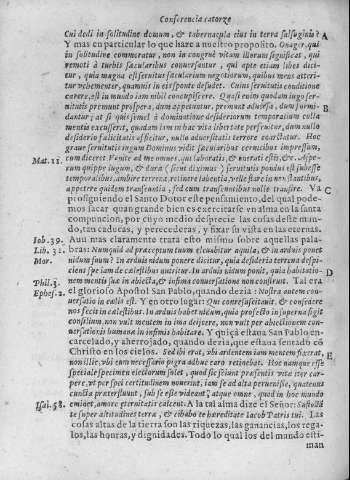 Conferencia catorze
Cui dedi in solitudine domum, & tabernacula eius in terra salsuginis? A
Y mas en particular lo que haze a nuestro proposito. Onager, qui
in solitudine commoratur, non in congruè vitam illorum significat, qui
remoti à turbis sæcularibus conversantur, qui apte etiam liber dici-
tur, quia magna est servitus sæcularium negotiorum, quibus mens atteri-
tur vehementer, quamvis in eis sponte desudet. Cuius servitutis conditione
carere, est in mundo iam nihil concupiscere. Quasi enim quodam iugo ser-
vitutis premunt prospera, dum appetuntur, premunt adversa, dum formi- B
dantur; at si quis semel à dominatione desideriorum temporalium colla
mentis excusserit, quadam iam in hac vita libertate perfruitur, dum nullo
desiderio felicitatis afficitur, nullo adversitatis terrore coarctatur. Hoc
grave servitutis iugum Dominus vidit sæcularibus cervicibus impressum,
Mat. 11. cum diceret Venite ad me omnes, qui laboratis, & onerati estis, &c. Aspe-
rum quippe iugum, & dura (sicut diximus) servitutis pondus est subesse
temporalibus, ambire terrena, retinere labentia, velle stare in non stantibus,
appetere quidem transeuntia, sed cum transeuntibus nolle transire. Va C
prosiguiendo el Santo Dotor este pensamiento, del qual pode-
mos sacar quan grande bien es exercitarse vn alma en la santa
compuncion, por cuyo medio desprecie las cosas deste mun-
do, tan caducas, y perecederas, y fixar su vista en las eternas.
Iob. 39. Aun mas claramente trata esto mismo sobre aquellas pala-
Lib. 31. bras: Nunquid ad præceptum tuum elevabitur aquila, & in arduis ponet
Mor. nidum suum? In arduis nidum ponere dicitur, quia desideria terrena despi-
ciens spe iam de cælestibus nutritur. In arduis nidum ponit, quia habitatio- D
nem mentis suæ in abiecta, & infima conversatione non construit. Tal era
Phil. 3. el glorioso Apostol San Pablo, quando dezia: Nostra autem con-
Ephes. 2. versatio in cælis est. Y en otro lugar: Qui conresuscitavit, & consedere
nos fecit in cælestibus. In arduis habet nidum, quia profecto in superna figit
consilium, non vult mentem in ima deijcere, non vult per abiectionem con-
versationis humanæ in infimis habitare. Y quiçà estava San Pablo en-
carcelado, y aherrojado, quando dezia, que estava sentado cõ
Christo en los cielos. Sed ibi erat, vbi ardentem iam mentem fixerat, E
non illic, vbi eum necessario pigra adhuc caro retinebat. Hoc namque esse
speciale specimen electorum solet, quod sic sciunt præsentis vitæ iter car-
pere, vt per spei certitudinem noverint, iam se ad alta pervenisse, quatenus
cuncta præterfluunt, sub se esse videant, atque omne, quod in hoc mundo
Isai. 58. eminet, amore æternitatis calcent. A la tal alma dize el Señor: Sustollā
te super altitudines terræ, & cibabo te hæreditate Iacob Patris tui. Las
cosas altas de la tierra son las riquezas, las ganancias, los rega-
los, las honras, y dignidades. Todo lo qual los del mundo esti-
man